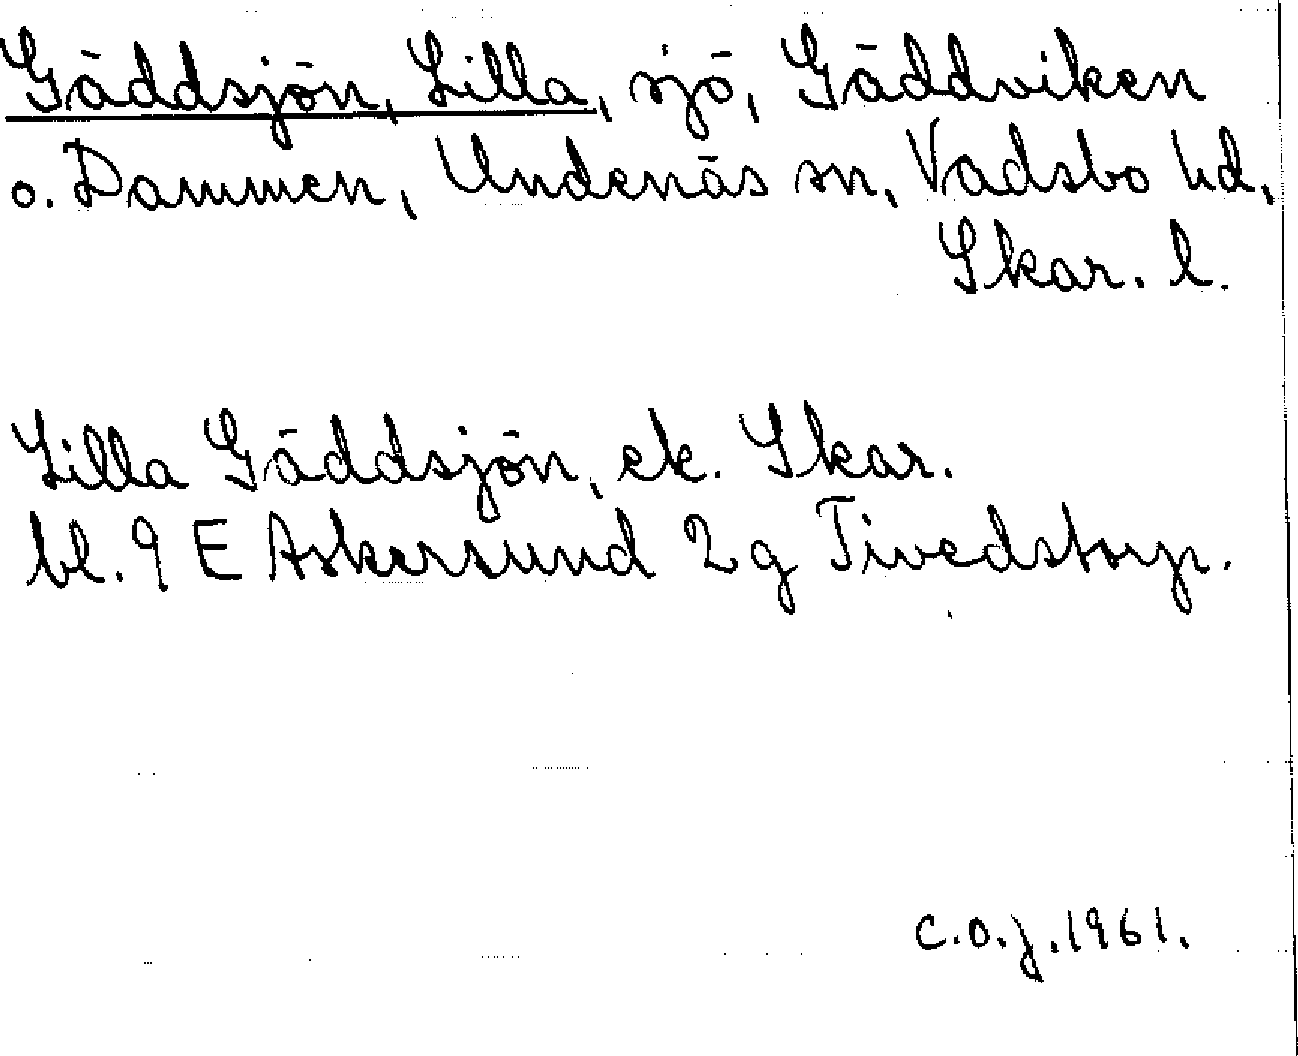 Gäddsjön, Lilla, sjö, Gäddviken
o. Dammen, Undenäs sn, Vadsbo hd,
Skar. l.
Lilla Gäddsjön, ek. Skar.
bl. 9 E Askersund 2 g Tivedstorp.
C.O.J. 1961.